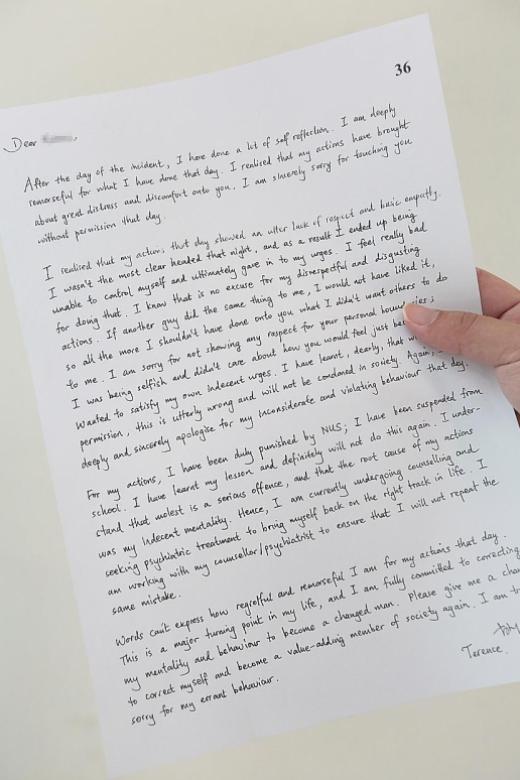 36
Dear
After the day of the incident, I have done a lot of self reflection. I am deeply
remorseful for what I have done that day. I realised that my actions have brought
about great distress and discomfort onto you. I am sincerely sorry for touching you
without permission that day.
I realised that my actions that day showed an utter lack of respect and basic empathy.
I wasn't the most clear headed that night, and as a result I ended up being
unable to control myself and ultimately gave in to my urges. I feel really bad
for doing that. I know that is no excuse for my disrespectful and disgusting
actions. If another guy did the same thing to me, I would not have liked it,
so all the more I shouldn't have done onto you what I didn't want others to do
to me. I am sorry for not showing any respect for your personal boundaries;
I was being selfish and didn't care about how you would feel just
wanted to satisfy my own indecent urges. I have learnt, dearly, that
permission, this is utterly wrong and will not be condoned in society. Again,
deeply and sincerely apologise for my inconsiderate and violating behaviour that day.
For my actions, I have been duly punished by NUS; I have been suspended from
school. I have learnt my lesson and definitely will not do this again. I under-
stand that molest is a serious offence, and that the root cause of my actions
was my indecent mentality. Hence, I am currently undergoing counselling and
seeking psychiatric treatment to bring myself back on the right track in life. I
am working with my counsellor/psychiatrist to ensure that I will not repeat the
same mistake.
Words can't express how regretful and remorseful I am for my actions that day.
This is a major turning point in my life, and I am fully committed to correcting
my mentality and behaviour to become a changed man. Please give me a
to correct myself and become a value-adding member of society again. I am
sorry for my errant behaviour.
Terence.